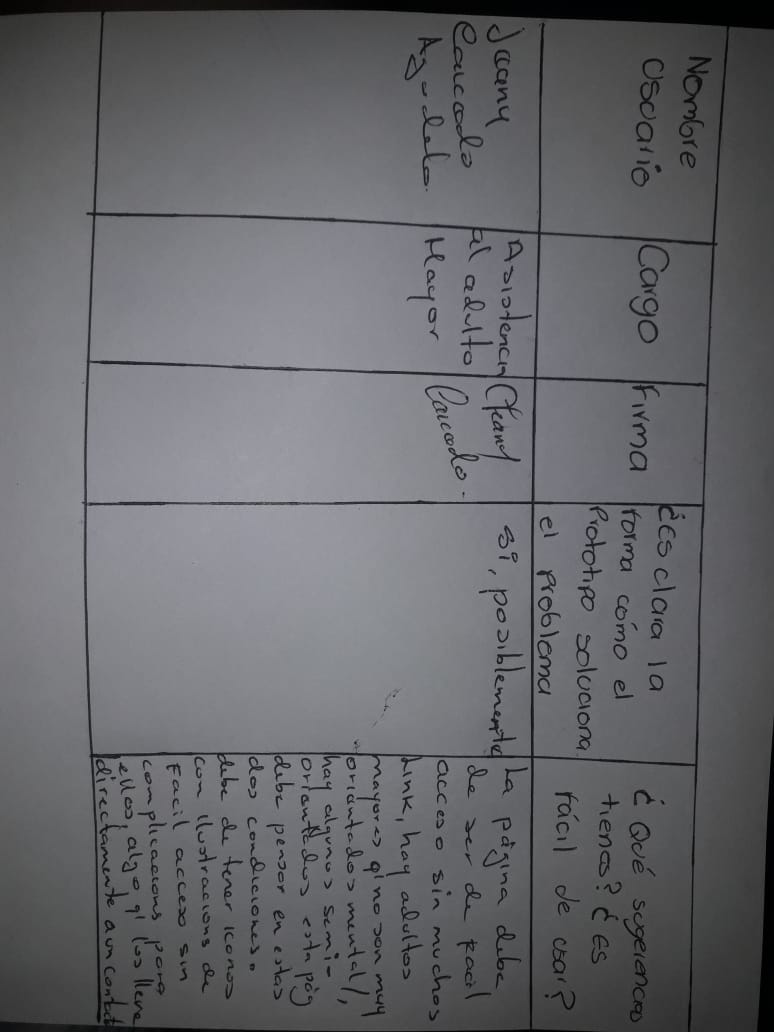 Nombre
Usuario
Cargo
Firma
¿Es clara la
forma cómo el
Prototipo soluciona
el problema
¿Qué sugerencias
tienes? ¿Es
fácil de usar?
Agudelo.
Asistencia
al adulto
Mayor
Si, posiblemente
La página debe
de ser de facil
acceso sin muchos
Link, hay adultos
mayores q' no son muy
oriantados mental/,
hay algunos semi-
oriantados esta pág
debe pensar en estas
dos condiciones.
debe de tener iconos
con ilustracions de
Facil acceso sin
complicacions para
ellos, algo q' los lleve
directamente a un contact